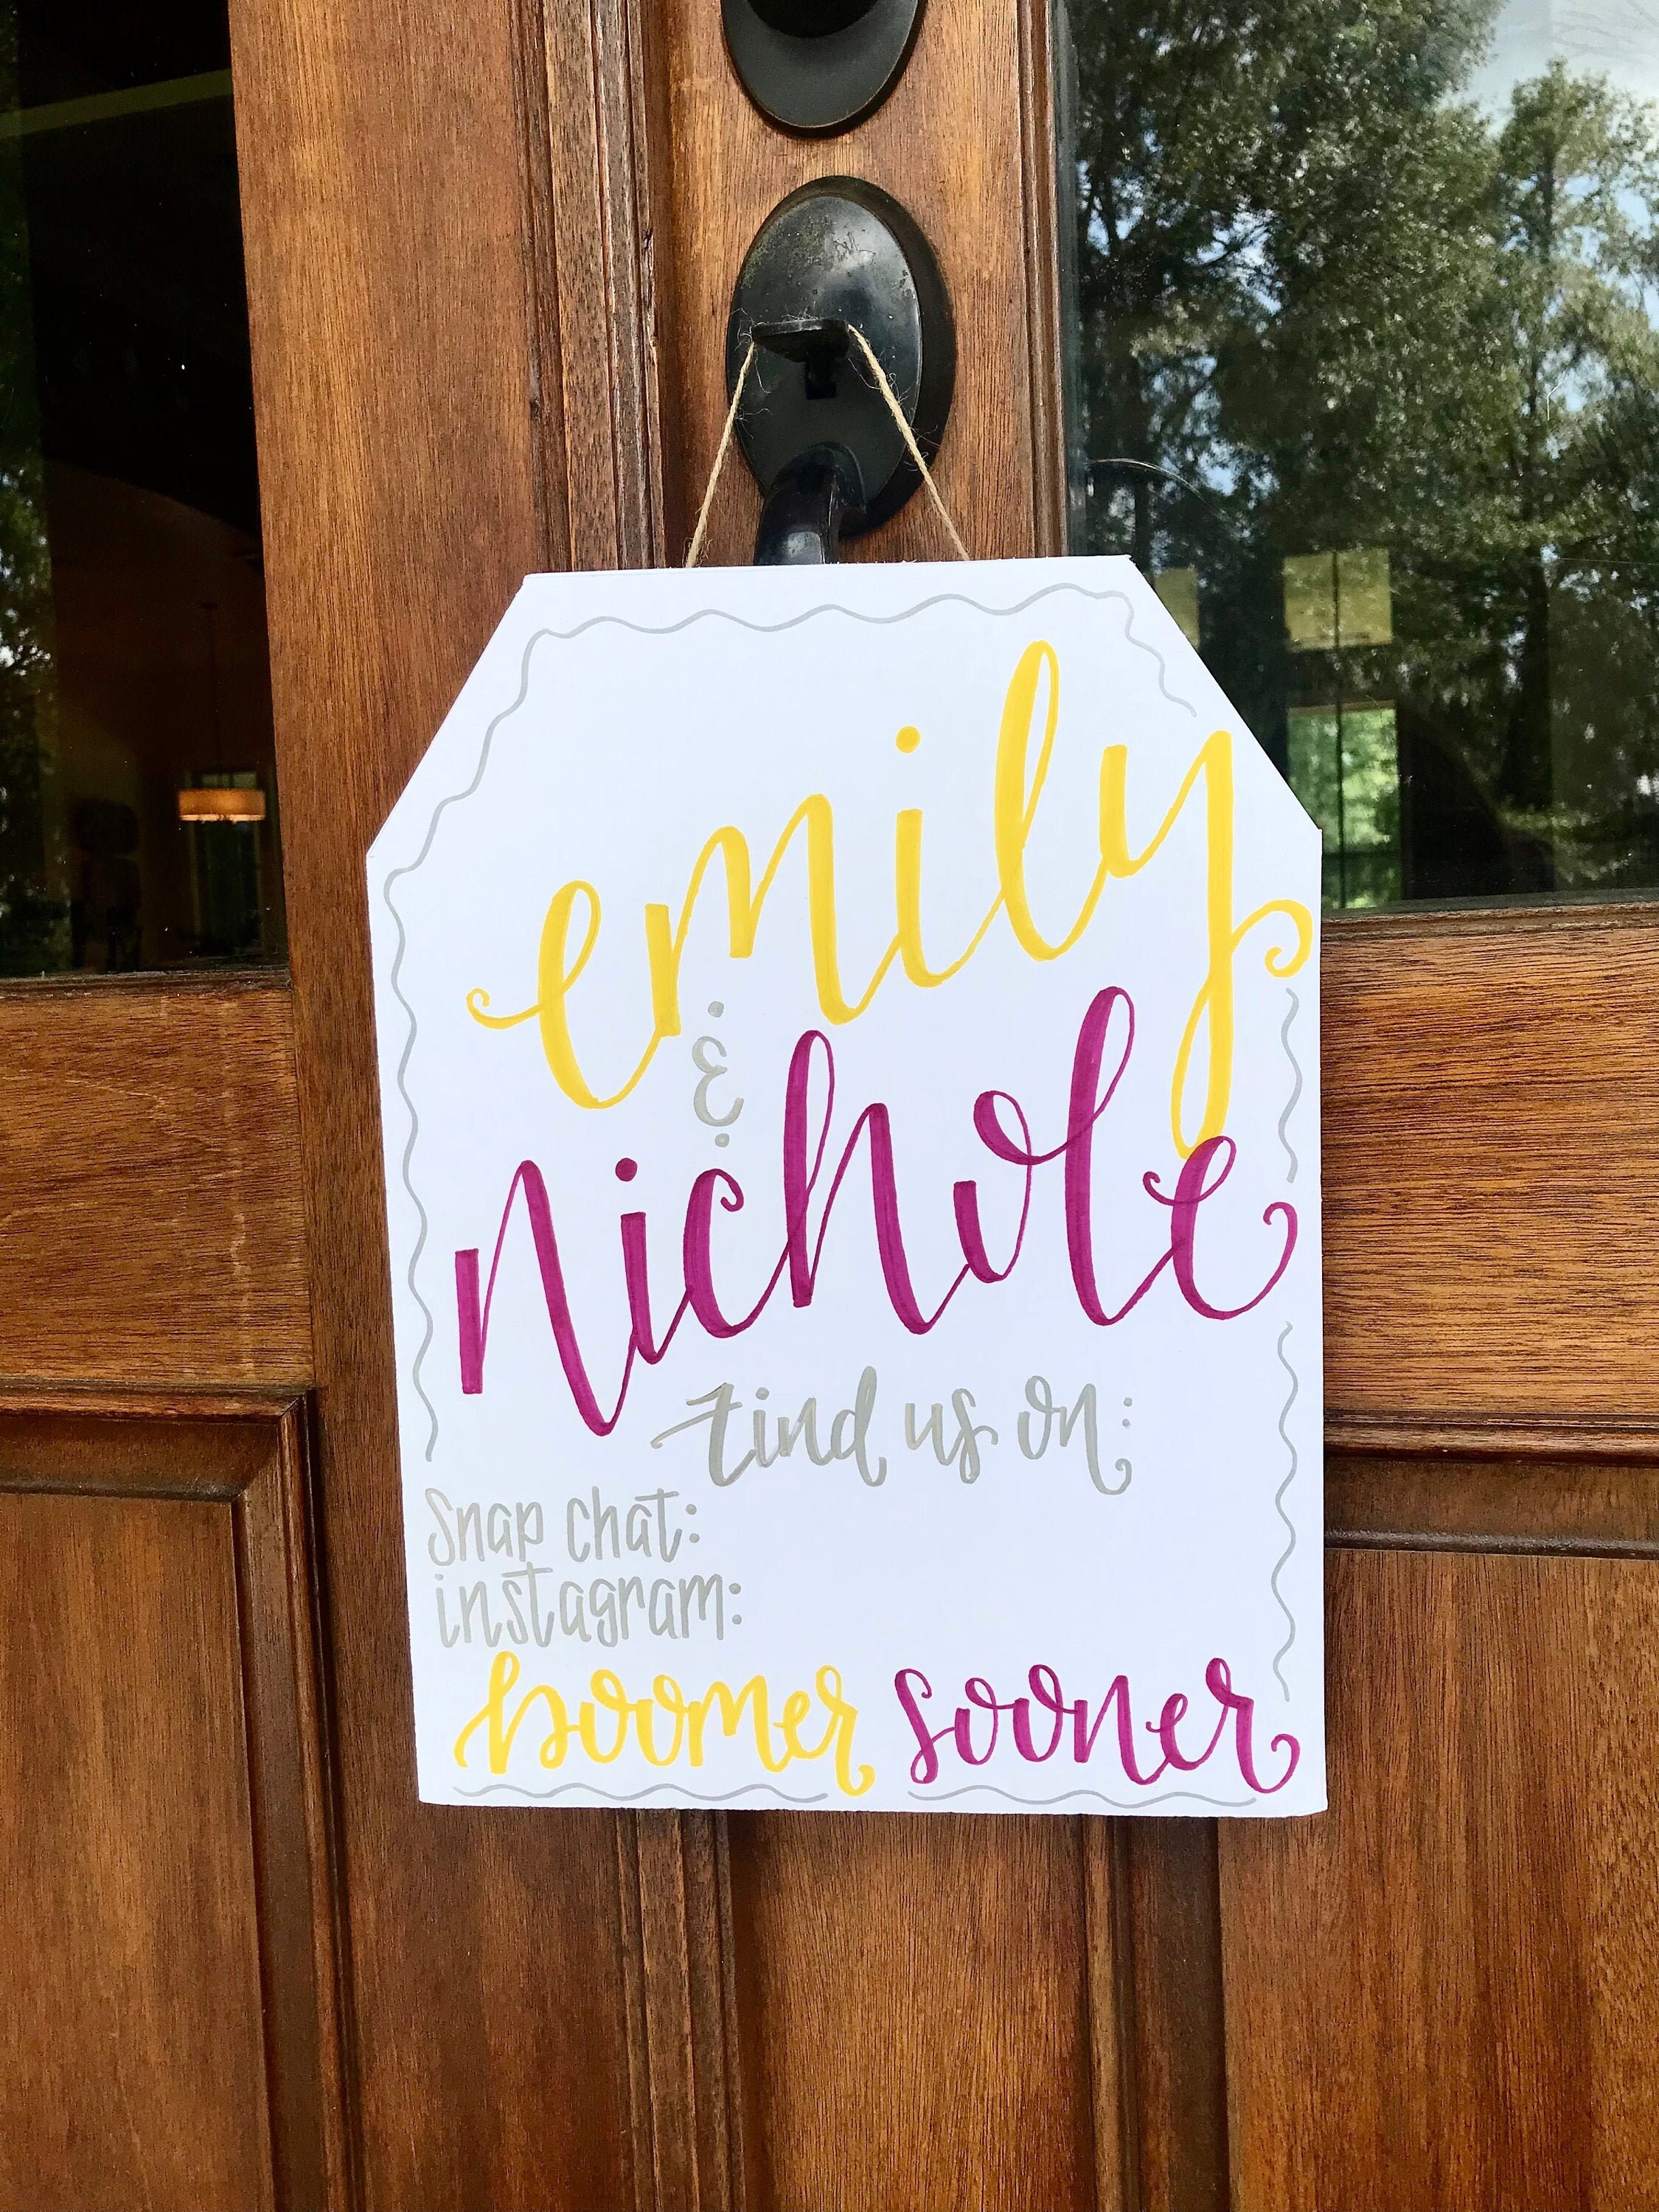 emily
&
nichole
find us on:
Snap chat:
instagram:
boomer sooner